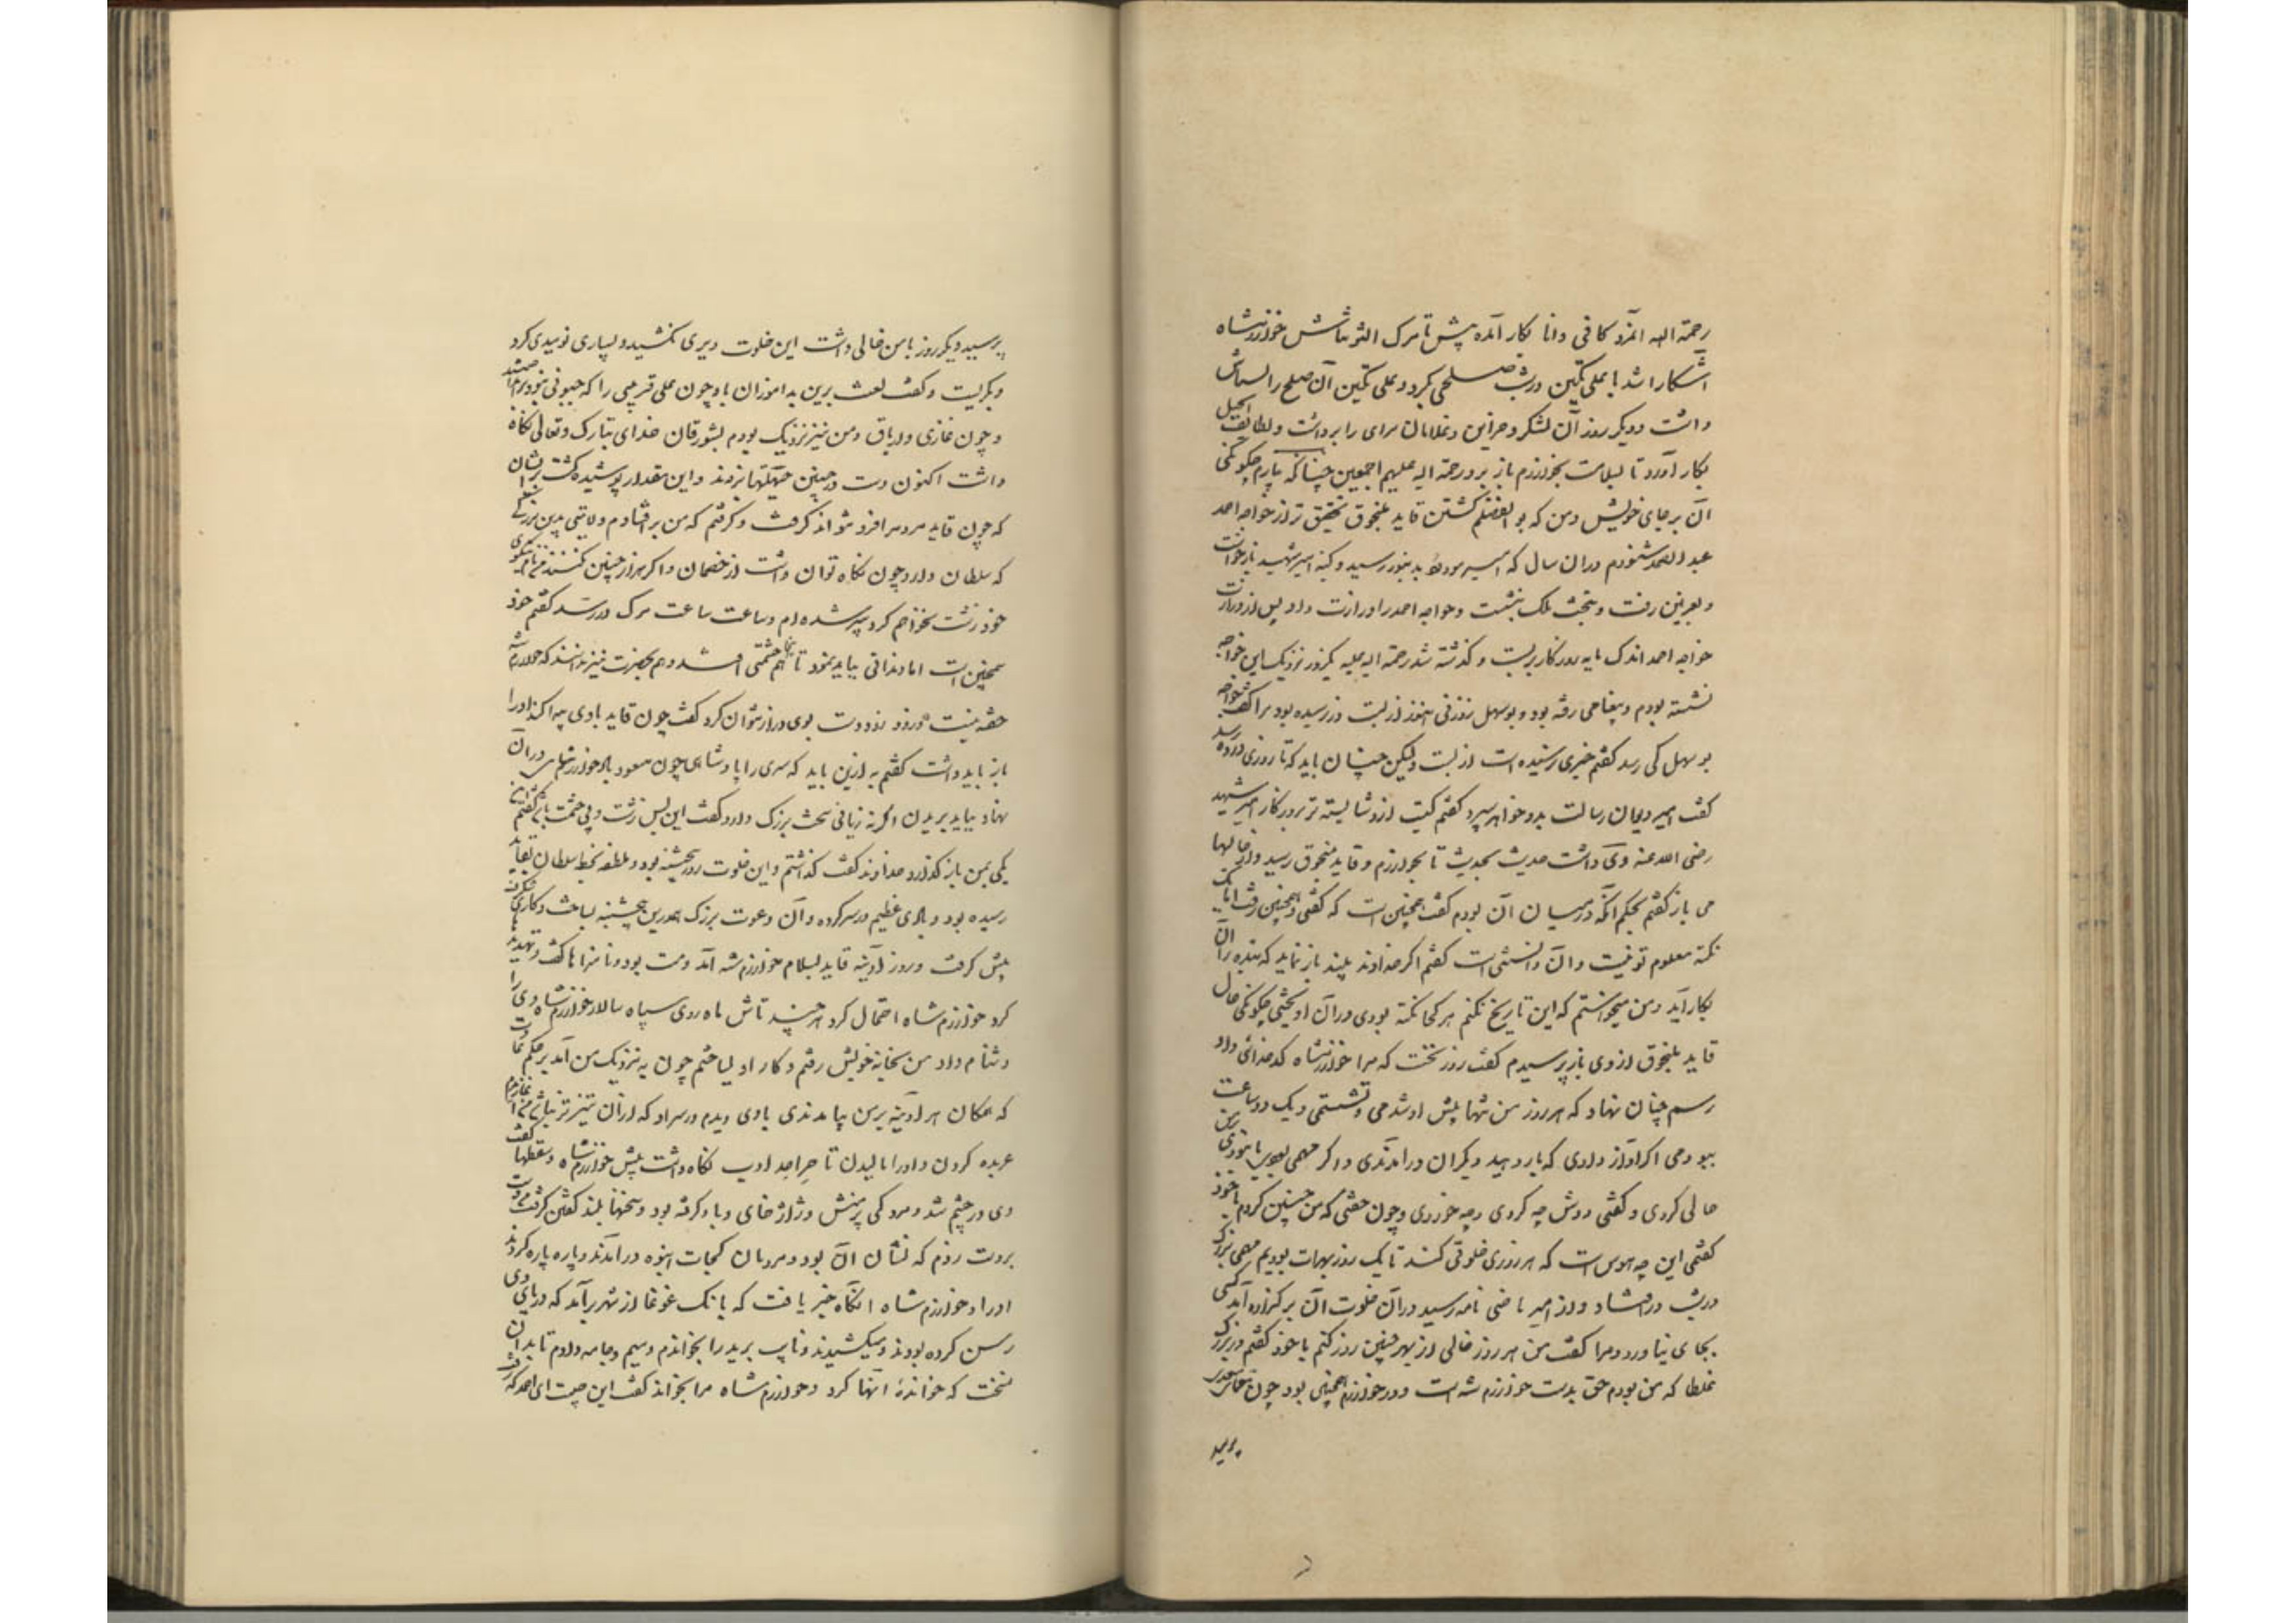 رحمة الله آنمرد کافی و دانا بکار آمده پیش تا مرک التونتاش خوارزمشاه
آشکارا شد با علی تکین در شب صلحی بکرد و علی تکین آن صلح را
داشت و دیکر روز آن لشکر و خزاین و غلامان سرای را برداشت و لطائف الحیل
بکار آورد تا بسلامت بخوارزم باز برد رحمة الله علیهم اجمعین چنانکه بیارم چکونکی
آن بر جای خویش و من که بوالفضلم کشتن قاید ملنجوق تحقیق تر از خواجه احمد
عبد الصمد شنودم در آن سال که امیر مودود بدینور رسید و کینه امیر شهید بازخواست
و بغزنین رفت و بتخت ملک بنشست و خواجه احمد را وزارت داد و پس از وزارت
خواجه احمد اندک مایه روزکار بزیست و کذشته شد رحمة الله علیه یکروز نزدیک این خواجه
نشسته بودم و پیغامی رفته بود و بوسهل زوزنی هنوز از بست در نرسیده بود مرا کفت خواجه
بوسهل کی رسد کفتم خبری نرسیده است از بست ولیکن چنان باید که تا روزی ده رسد
کفت امیر دیوان رسالت بدو خواهد سپرد کفتم کیست ازو شایسته تر بروزکار امیر شهید
رضی الله عنه وی داشت حدیث بحدیث تا بخوارزم و قاید منجوق رسید و از حالها
می باز کفتم بحکم آنکه در میان آن بودم کفت همچنین است که کفتی و همچنین رفت اما یک
نکته معلوم تو نیست و آن دانستنی است کفتم اکر خداوند بیند باز نماید که بنده را آن
بکار آید و من میخواستم که این تاریخ بکنم هر کجا نکته بودی در آن آویختمی چکونکی حال
قاید ملنجوق از وی باز پرسیدم کفت روز نخست که مرا خوارزمشاه کدخدائی داد
رسم چنان نهاد که هر روز من تنها پیش او شدمی و بنشستمی و یک دو ساعت
ببودمی اکر آواز دادی که بار دهید دیکران در آمدندی و اکر مهمی بودی یا نبودی بر من
خالی کردی و کفتی دوش چه کردی و چه خوردی و چون خفتی که من چنین کردم با خود
کفتمی این چه هوس است که هر روزی خلوتی کند تا یک روز بهرات بودیم مهمی بزرک
در شب در افتاد و از امیر ماضی نامه رسید در آن خلوت آن برکزارده آمد کسی
بجای نیاورد و مرا کفت من هر روز خالی از بهر چنین روز کنم با خود کفتم در بزرک
غلطا که من بودم حق بدست خوارزمشاه است و در خوارزم همچنین بود چون معما مسعدی
برسید
برسید دیکر روز با من خالی داشت این خلوت دیری بکشید و بسیاری نومیدی کرد
و بکریست و کفت لعنت برین بدآموزان باد چون علی قریبی را که چنویی نبود برانداختند
و چون غازی و اریاق و من نیز نزدیک بودم بشورقان خدای تبارک و تعالی نکاه
داشت اکنون دست در چنین حیلتها بزدند و این مقدار پوشیده کشت بریشان
که چون قاید مردم را فرو نتواند کرفت و کرفتم که من برافتادم ولایتی بدین بزرکی
که سلطان دارد چون نکاه توان داشت از خصمان و اکر هزار چنین کنند من نام نیکوی
خود زشت نخواهم کرد پیر شده ام و ساعت ساعت مرک در رسد کفتم خود
همچنین است اما دندانی بباید نمود تا هم آنجا حشمتی افتد و هم بحضرت نیز بدانند که خوارزمشاه
خفته نیست و زود زود دست بوی دراز نتوان کرد کفت چون قاید بادی پیدا کند او را
باز باید داشت کفتم به ازین باید که سری را پادشاهی چون مسعود باد خوارزمشاهی در آن
نهاد بباید بریدن اکرنه زیانی سخت بزرک دارد کفت این بس زشت و بی حشمت باشد کفتم این
یکی بمن باز کذارد خداوند کفت کذاشتم و این خلوت روز پنجشنبه بود و ملطفه بخط سلطان بقاید
رسیده بود و بادی عظیم در سر کرده و آن دعوت بزرک هم درین پنجشنبه بساخت و کاری شکرف
پیش کرفت و روز آدینه قاید بسلام خوارزمشاه آمد و مست بود و ناسزاها کفت و تهدیدها
کرد خوارزمشاه احتمال کرد هر چند تاش ماه روی سپاه سالار خوارزمشاه وی را
دشنام داد من بخانه خویش رفتم و کار او بساختم چون بنزدیک من آمد بر حکم عادت
که همکان هر آدینه بر من بیامدندی بادی دیدم در سر او که از آن تیزتر نباشد من آغازیدم
عربده کردن و او را مالیدن تا چرا حد ادب نکاه نداشت پیش خوارزمشاه و سقطها کفت
وی در خشم شد و مردکی پرمنش و ژاژ خای و باد کرفته بود و سخنها بلند کفتن کرفت من دست
بر دست زدم که نشان آن بود و مردمان کجات انبوه در آمدند و پاره پاره کردند
او را و خوارزمشاه آنکاه خبر یافت که بانک غوغا از شهر برآمد که در پای وی
رسن کرده بودند و میکشیدند و نایب برید را بخواندم و سیم و جامه دادم تا بدان
نسخت که خوانده انها کرد و خوارزمشاه مرا بخواند کفت این چیست ای احمد که رفت